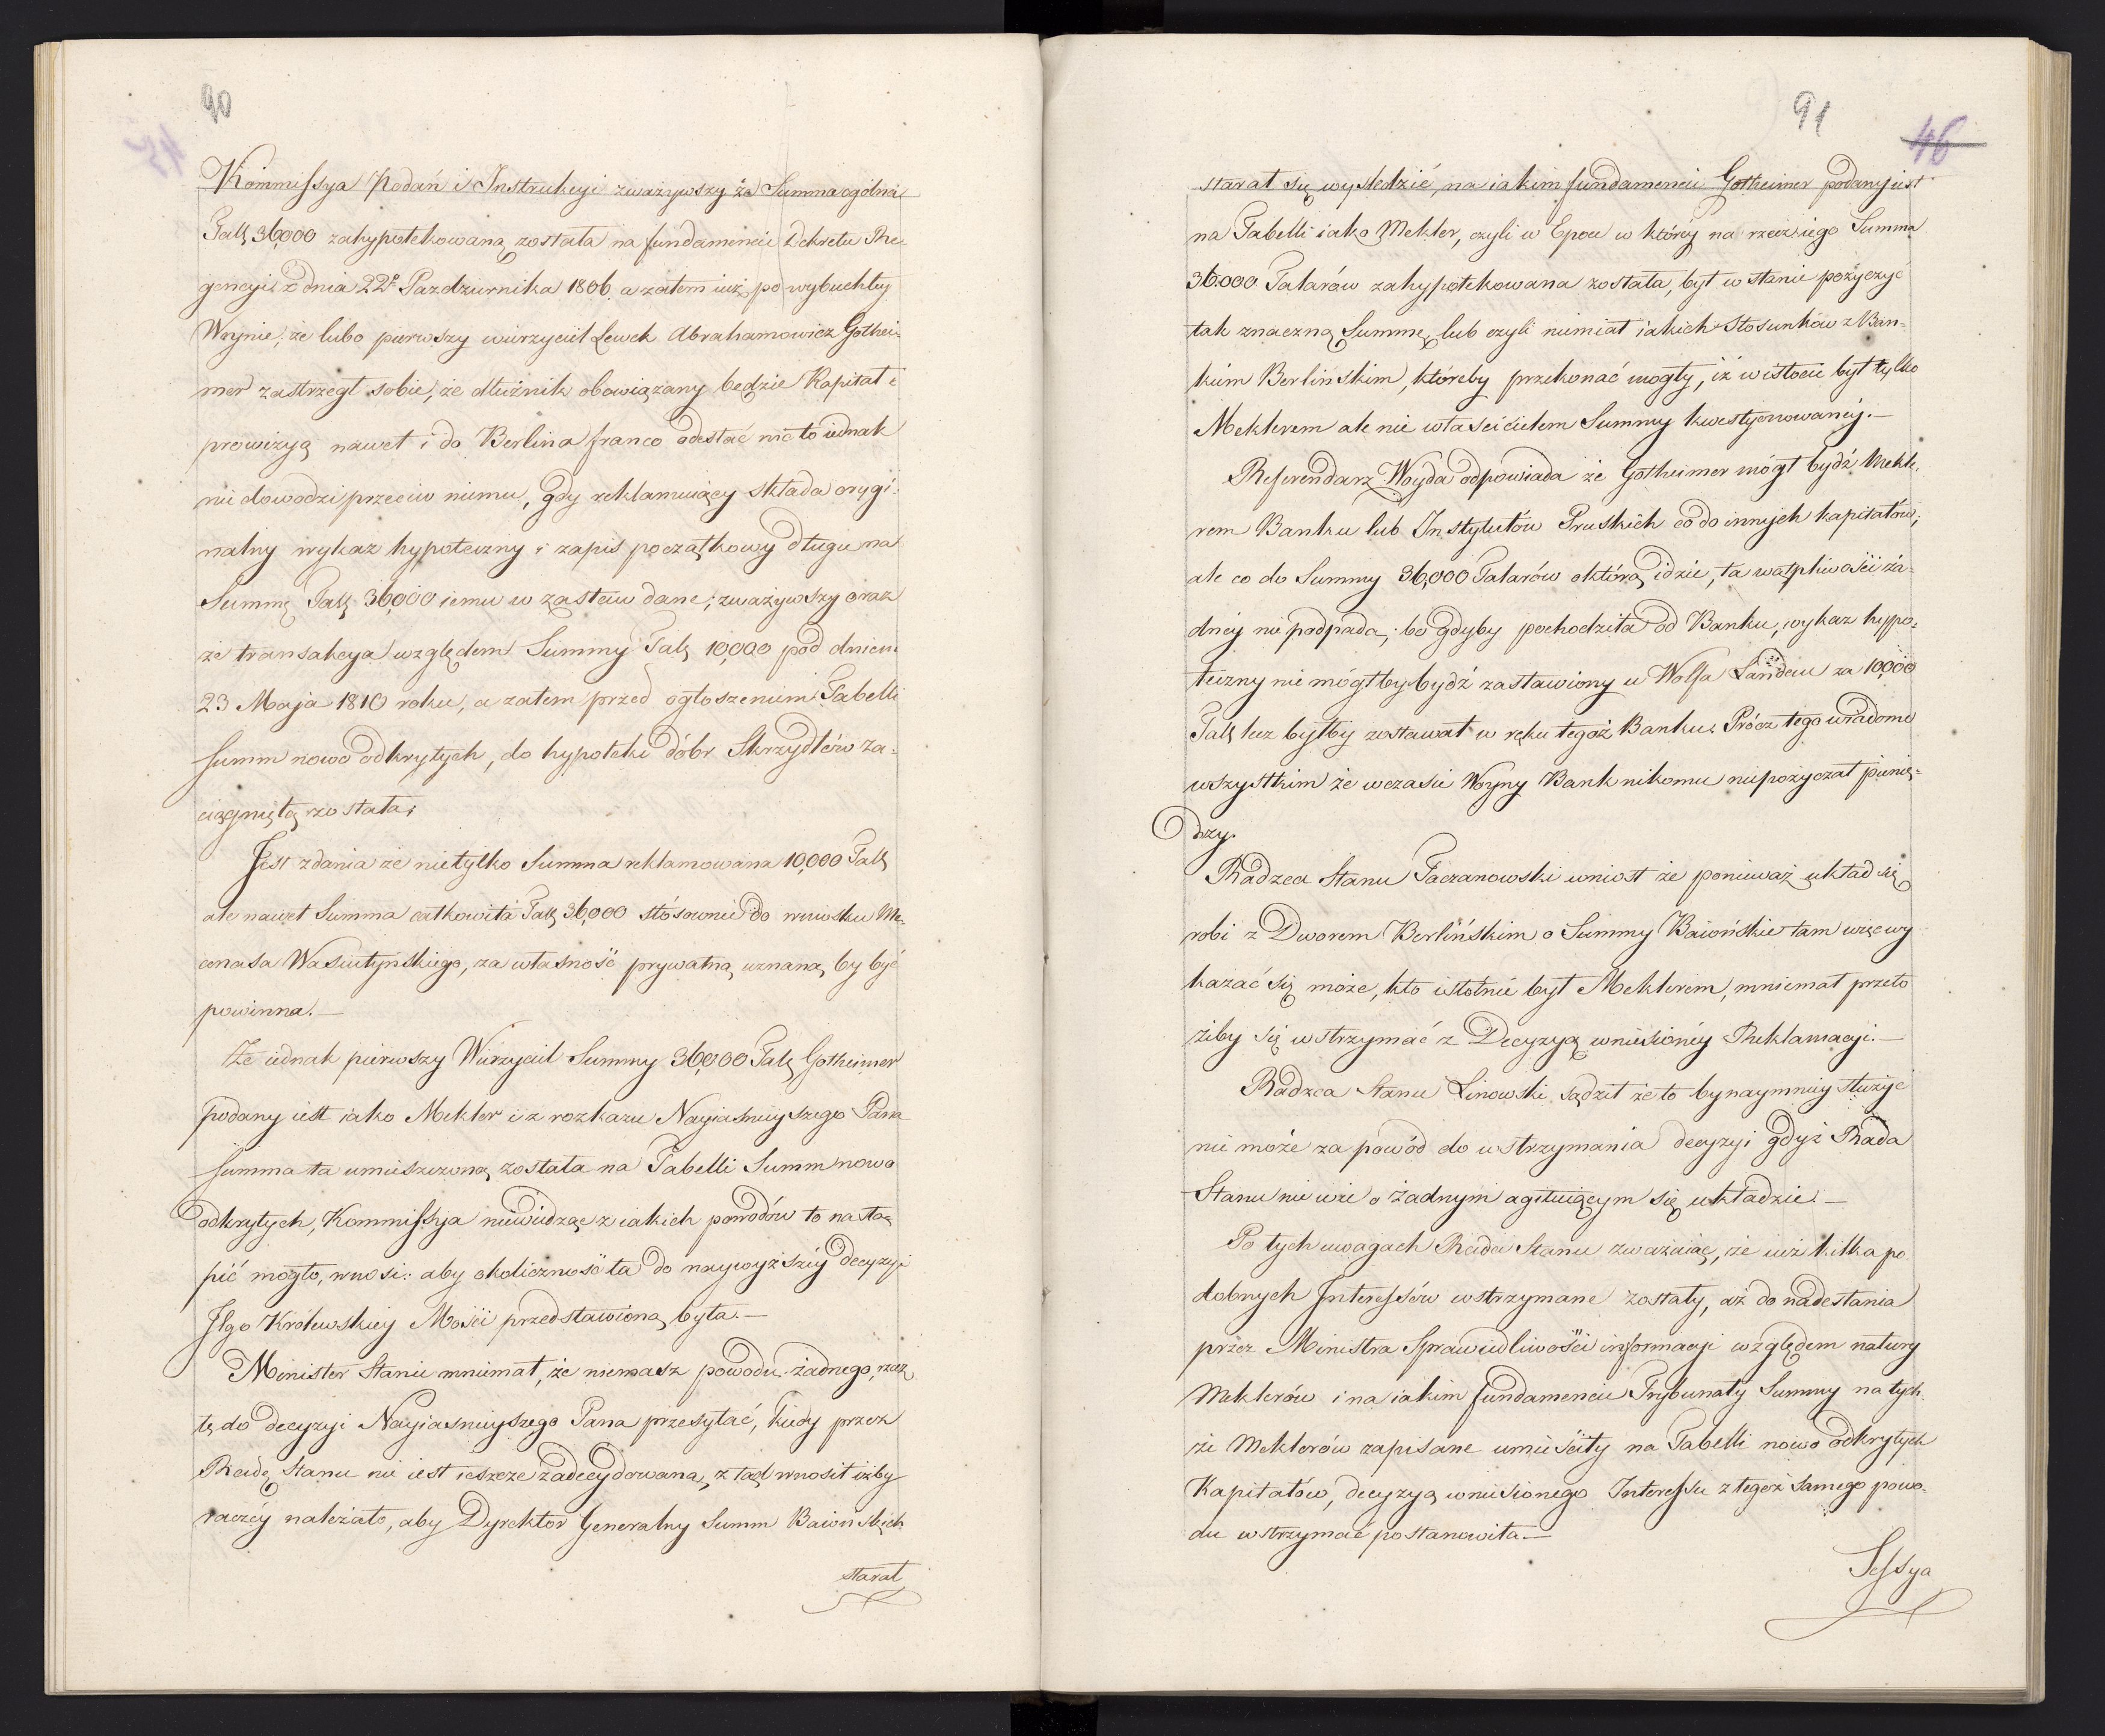 90
Kommissya Podań i Instrukcyi zważywszy że Summa ogólna
Tall 36,000 zahypotekowaną została na fundamencie Dekretu Re-
gencyi z dnia 22º Pazdziernika 1806. a zatem iuż po wybuchłey
Woynie, że lubo pierwszy wierzyciel Lewek Abrahamowicz Gothei-
mer zastrzegł sobie, że dłużnik obowiązany będzie Kapitał i
prowizyą nawet i do Berlina franco odesłać nic to iednak
nie dowodzi przeciw niemu, gdy reklamuiący składa orygi-
nalny wykaz hypoteczny i zapis początkowy długu na
Summę Tall 36,000 iemu w zastaw dane; zważywszy oraz
że transakcya względem Summy Tall 10,000 pod dniem
23 Maja 1810 roku, a zatem przed ogłoszeniem Tabelli
summ nowo odkrytych, do hypoteki dóbr Skrzydłów za-
ciągniętą została;
Jest zdania że nietylko Summa reklamowana 10,000 Tall
ale nawet Summa całkowita Tall 36,000 stósownie do wniosku Me-
cenasa Wasiutyńskiego, za własność prywatną uznaną by być
powinna.—
Że iednak pierwszy Wierzyciel Summy 36,000 Tall Gotheimer
podany iest iako Mekler i z rozkazu Nayiaśnieyszego Pana
summa ta umieszczoną została na Tabelli Summ nowo
odkrytych, Kommissya niewidząc z iakich powodów to nastą-
pić mogło, wnosi: aby okoliczność ta do naywyższéy decyzyi
Jlgo Królewskiey Mości przedstawioną była.—
Minister Stanu mniemał, że niemasz powodu żadnego, rzecz
tę do decyzyi Nayiaśnieyszego Pana przesyłać, kiedy przez
Radę Stanu nie iest ieszcze zadecydowana, z tąd wnosił iżby
raczéy należało, aby Dyrektor Generalny Summ Baiońskich
starał
91
46
starał się wyśledzić, na iakim fundamencie Gotheimer podany iest
na Tabelli iako Mekler, czyli w Epoce w któréy na rzecz iego Summa
36,000 Talarów zahypotekowana została, był w stanie pożyczyć
tak znaczną Summę, lub czyli niemiał iakich Stosunków z Ban-
kiem Berlińskim, któreby przekonać mogły, iż w istocie był tylko
Meklerem ale nie właścicielem Summy kwestyonowanéy.—
Referendarz Woyda odpowiada że Gotheimer mógł bydź Mekle-
rem Banku lub Instytutów Pruskich co do innych kapitałów,
ale co do Summy 36,000 Talarów o którą idzie, ta wątpliwości ża-
dnéy nie podpada, bo gdyby pochodziła od Banku, wykaz hypo-
teczny nie mógłby bydź zastawiony u Wolfa Landau za 10,000
Tall lecz byłby zostawał w ręku tegoż Banku. Prócz tego wiadomo
wszystkim że w czasie Woyny Bank nikomu niepożyczał pienię-
dzy.
Radzca Stanu Taczanowski wniosł że ponieważ układ się
robi z Dworem Berlińskim o Summy Baiońskie tam więc wy-
kazać się może, kto istotnie był Meklerem, mniemał przeto
żeby się wstrzymać z Decyzyą wniesionéy Reklamacyi.—
Radzca Stanu Linowski sądził że to bynaymniéy służyć
nie może za powód do wstrzymania decyzyi gdyż Rada
Stanu nie wie o żadnym agituiącym się układzie.—
Po tych uwagach Rada Stanu zważaiąc, że iuż kilka po-
dobnych Interessów wstrzymane zostały, aż do nadesłania
przez Ministra Sprawiedliwości informacyi względem natury
Meklerów i na iakim fundamencie Trybunały Summy na tych-
że Meklerów zapisane umieściły na Tabelli nowo odkrytych
Kapitałów, decyzyą wniesionego Interessu z tegoż samego powo-
du wstrzymać postanowiła.—
Sessya